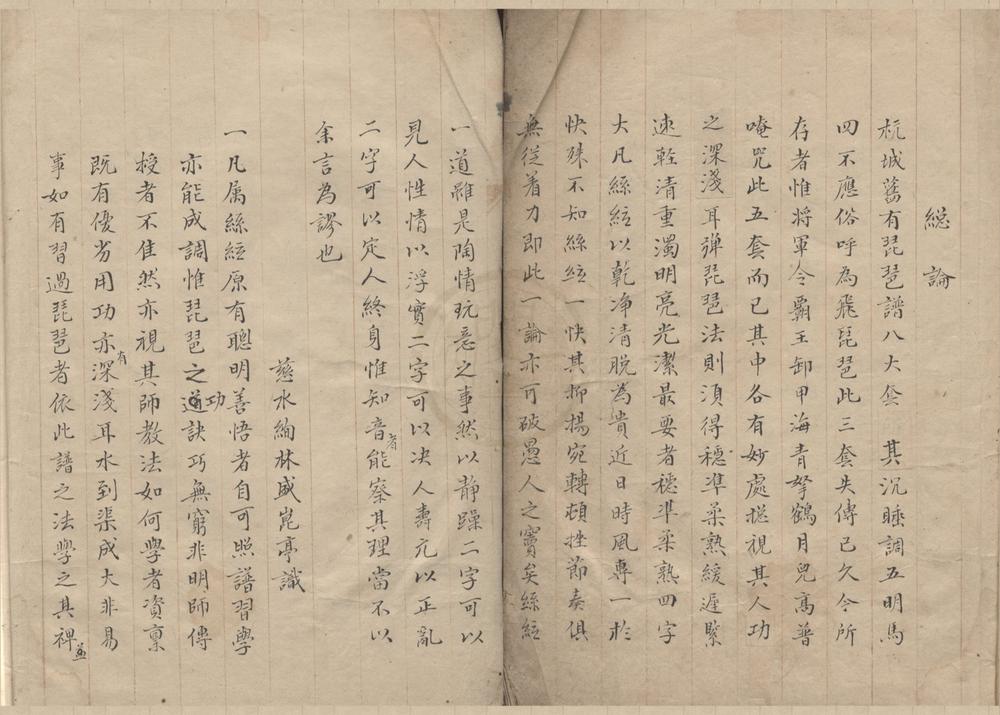 総論
杭城舊有琵琶譜八大套 其沉睡調五明馬
四不應俗呼為飛琵琶此三套失傳已久今所
存者惟將軍令霸王卸甲海青拏鶴月兒高普
唵咒此五套而已其中各有妙處摠視其人功
之深淺耳彈琵琶法則須得穩準柔熟緩遲緊
速輕清重濁明亮光潔最要者穩準柔熟四字
大凡絲絃以乾净清脫為貴近日時風專一於
快殊不知絲絃一快其抑揚宛轉頓挫節奏俱
無從着力即此一論亦可破愚人之竇矣絲絃
一道雖是陶情玩意之事然以静躁二字可以
見人性情以浮實二字可以决人壽亢以正亂
二字可以定人終身惟知音者能察其理當不以
余言為謬也
慈水絢林盛崑亭識
一凡属絲絃原有聰明善悟者自可照譜習學
亦能成調惟琵琶之功訣巧無窮非明師傳
授者不佳然亦視其師教法如何學者資稟
既有優劣用功亦有深淺耳水到渠成大非易
事如有習過琵琶者依此譜之法學之其裨益